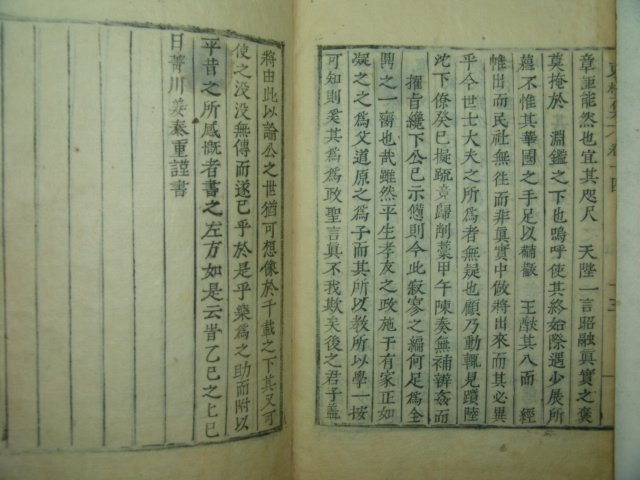 章詎能然也宜其咫尺 天陛一言昭融眞實之褒
莫掩於 淵鑑之下也嗚呼使其終始際遇少展所
蘊不惟其華國之手足以黼黻 王猷其八面 經
帷出而民社無往而非眞實中做將出來而其必異
乎今世士大夫之所爲者無疑也顧乃動輒見躓陸
沱下條癸巳擬疏竟歸削藁甲午陳奏無補辨姦而
擢旨纔下公已示憊則今此寂寥之編何足爲全
鬪之一臠也哉雖然平生孝友之政施于有家正如
凝之之爲父道原之爲子而其所以敎所以學一按
可知則奚其爲爲政聖言眞不我欺矣後之君子蓋
將由此以論公之世猶可想像於千載之下其又可
使之沒沒無傳而遂已乎於是乎樂爲之助而附以
平昔之所感慨者書之左方如是云旹乙巳之上巳
日菁川姜秦重謹書